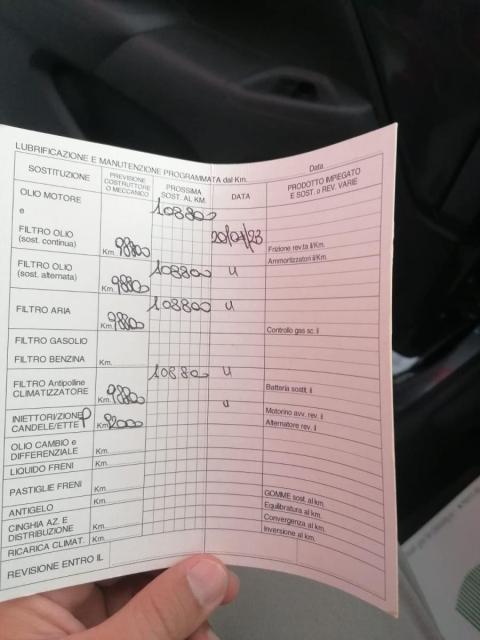 LUBRIFICAZIONE E MANUTENZIONE PROGRAMMATA dal Km. Data
SOSTITUZIONE PREVISIONE COSTRUTTORE O MECCANICO PROSSIMA SOST. AL KM. DATA PRODOTTO IMPIEGATO E SOST. o REV. VARIE
OLIO MOTORE 108800
e
FILTRO OLIO 20/07/23
(sost. continua) Km. 98800 Frizione rev.ta il/Km.
FILTRO OLIO 108800 u Ammortizzatori il/Km.
(sost. alternata) Km. 98800
FILTRO ARIA 108800 u
Km. 98800 Controllo gas sc. il
FILTRO GASOLIO
FILTRO BENZINA Km.
FILTRO Antipolline 108800 u
CLIMATIZZATORE Km. 98800 Batteria sostit. il
INIETTORI/ZIONE u Motorino avv. rev. il
CANDELE/ETTE P Km. 92000 Alternatore rev. il
OLIO CAMBIO e
DIFFERENZIALE Km.
LIQUIDO FRENI Km.
PASTIGLIE FRENI Km.
ANTIGELO Km. GOMME sost. al km.
CINGHIA AZ. E Equilibratura al km.
DISTRIBUZIONE Km. Convergenza al km.
RICARICA CLIMAT. Km. Inversione al km.
REVISIONE ENTRO IL